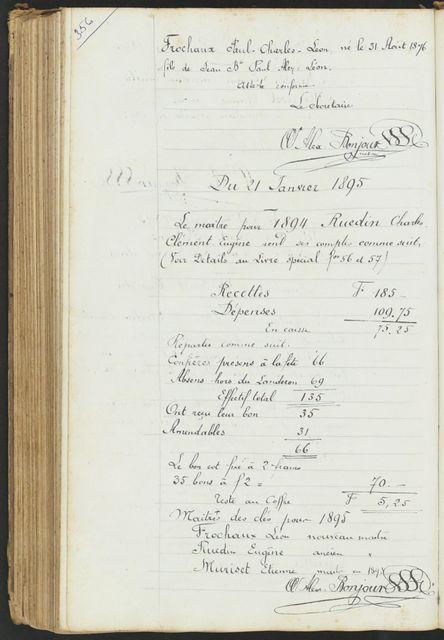 356
Frochaux Paul-Charles-Léon, né le 31 Août 1876
fils de Jean Bte Paul Alex. Léon.
Attesté conforme
Le Secrétaire
Ct Alex. Bonjour
Du 21 Janvier 1895
Le maître pour 1894 Ruedin Charles
Clément Eugène rend ses comptes comme suit.
(Voir Détails au Livre spécial fos 56 et 57)
Recettes F 185 -
Dépenses 109.75
En caisse 75.25
Répartis comme suit.
Confrères présens à la fête 66
Absens hors du Landeron 69
Effectif total 135
Ont reçu leur bon 35
Amendables 31
66
Le bon est fixé à 2 francs
35 bons à f 2 = 70.-
Reste au Coffre F 5,25
Maîtres des clés pour 1895
Frochaux Léon nouveau maître
Ruedin Eugène ancien "
Muriset Etienne maître en
Ct Alex. Bonjour